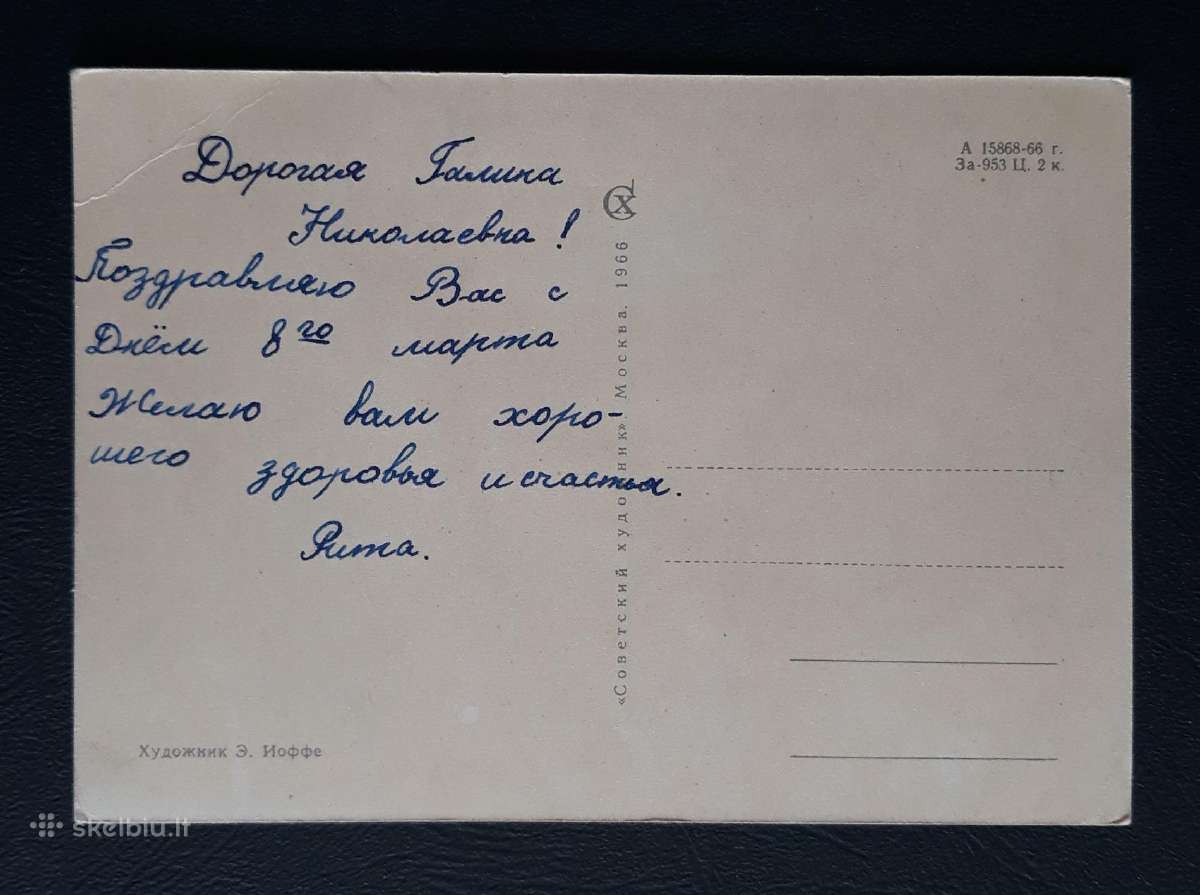 Дорогая Галина
Николаевна!
Поздравляю Вас с
Днём 8го марта
Желаю вам хоро-
шего здоровья и счастья.
Рита.
Художник Э. Иоффе
«Советский художник». Москва. 1966
СХ
А 15868-66 г.
За-953 Ц. 2 к.
skelbiu.lt